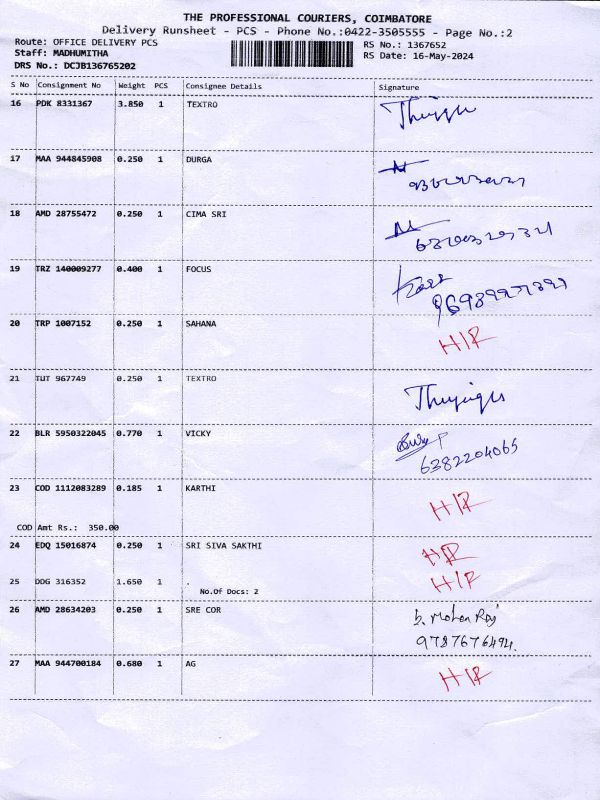 THE PROFESSIONAL COURIERS, COIMBATORE
Delivery Runsheet - PCS - Phone No.:0422-3505555 - Page No.:2
Route: OFFICE DELIVERY PCS
Staff: MADHUMITHA
DRS No.: DCJB136765202
RS No.: 1367652
RS Date: 16-May-2024
S No Consignment No Weight PCS Consignee Details Signature
16 PDK 8331367 3.850 1 TEXTRO
17 MAA 944845908 0.250 1 DURGA
18 AMD 28755472 0.250 1 CIMA SRI
19 TRZ 140009277 0.400 1 FOCUS
20 TRP 1007152 0.250 1 SAHANA H/R
21 TUT 967749 0.250 1 TEXTRO
22 BLR 5950322045 0.770 1 VICKY
6382204065
23 COD 1112083289 0.185 1 KARTHI H/R
COD Amt Rs.: 350.00
24 EDQ 15016874 0.250 1 SRI SIVA SAKTHI H/R
25 DDG 316352 1.650 1 . H/R
No.Of Docs: 2
26 AMD 28634203 0.250 1 SRE COR b. Mohan Raj
9787676494.
27 MAA 944700184 0.680 1 AG H/R